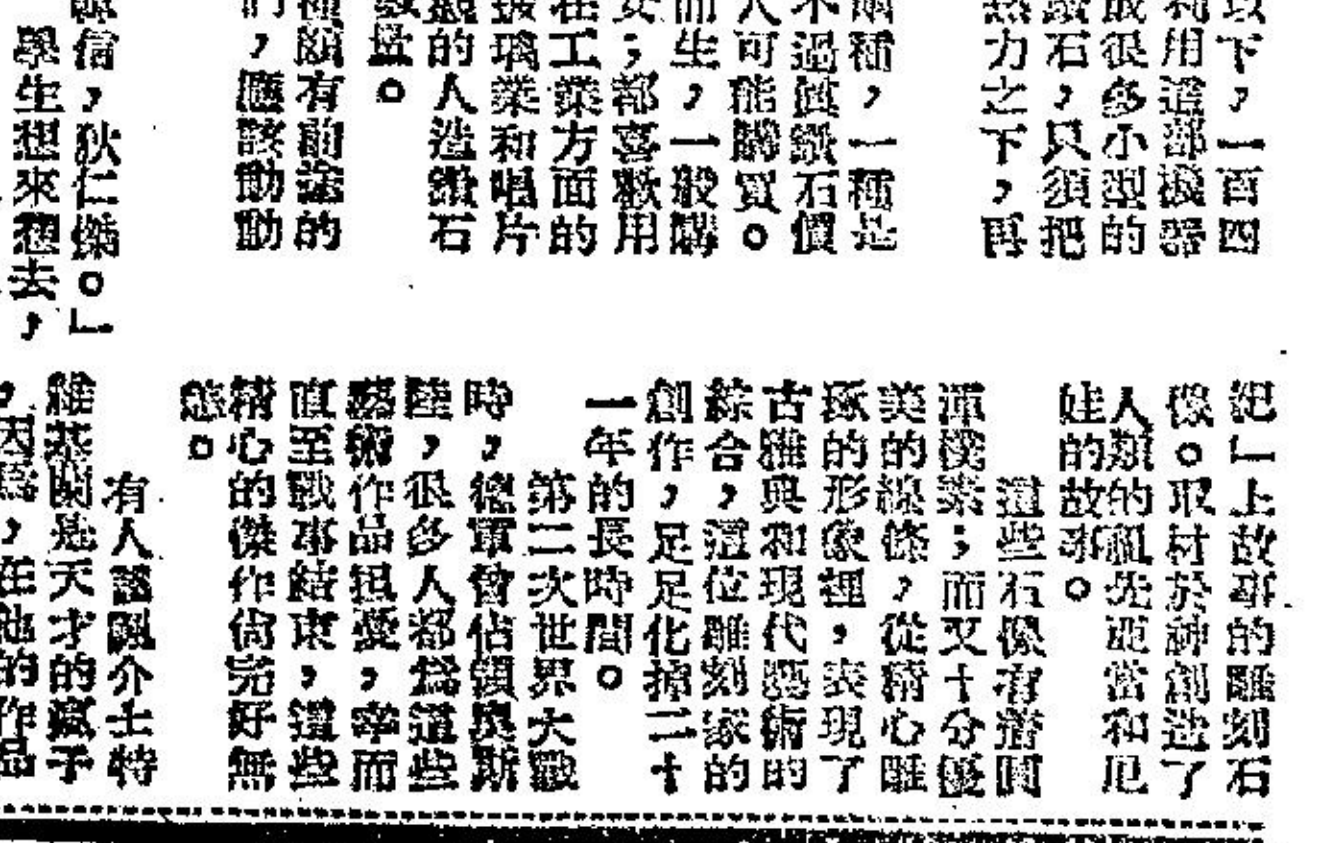 以下，一百四
利用這部機器
成很多小型的
鑽石，只須把
熱力之下，再
兩種，一種是
不過真鑽石價
人可能購買。
而生，一般購
女；都喜歡用
在工業方面的
玻璃業和唱片
的人造鑽石
數益。
種頗有前途的
們，應該動動
信，狄仁傑。」
學生想來想去，
紀」上故事的雕刻石
像。取材於神創造了
人類的祖先亞當和厄
娃的故事。
這些石像有着圓
渾樸素；而又十分優
美的線條，從精心雕
琢的形象裡，表現了
古雅典和現代藝術的
綜合，這位雕刻家的
創作，足足化掉二十
一年的長時間。
第二次世界大戰
時，德軍曾佔領奧斯
陸，很多人都為這些
藝術作品担憂，幸而
直至戰事結束，這些
精心的傑作尚完好無
恙。
有人認佩介士特
維基蘭是天才的瘋子
，因爲，在他的作品